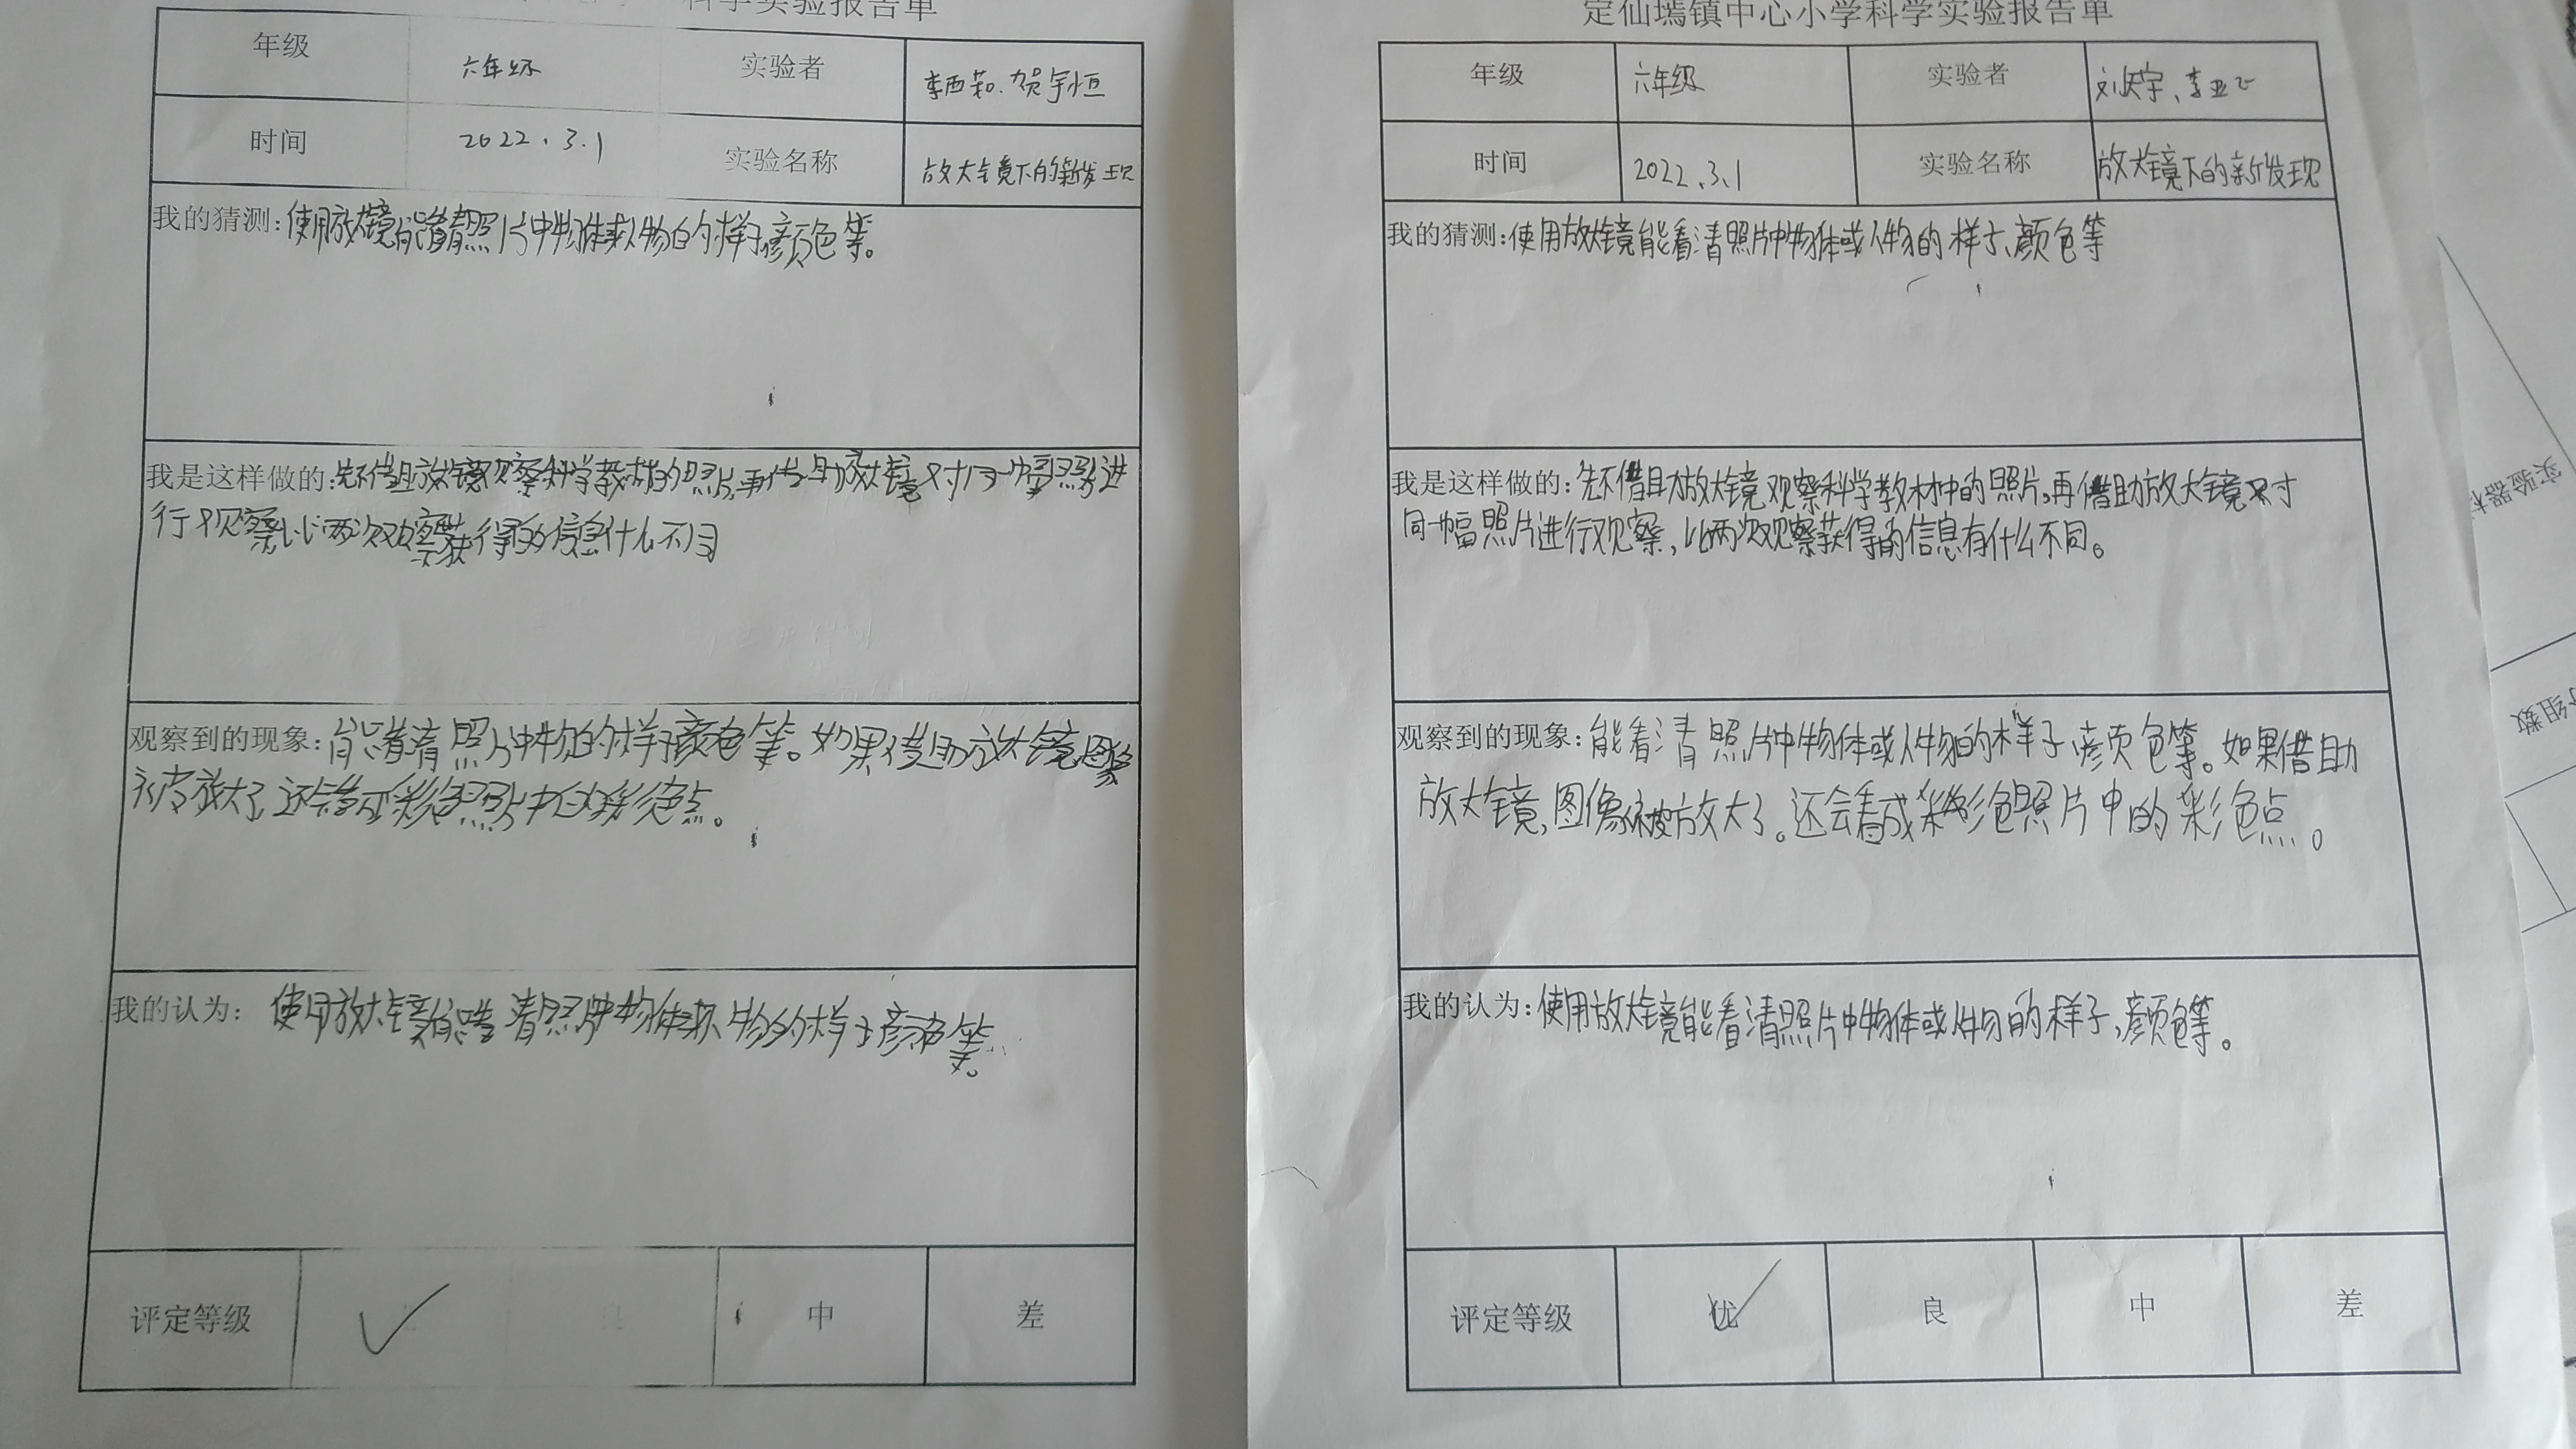 科学实验报告单
年级 六年级 实验者 李西茹、贺宇恒
时间 2022.3.1 实验名称 放大镜下的新发现
我的猜测:使用放大镜能看清照片中物体或人物的样子,颜色等。
我是这样做的:先不借助放大镜观察科学教材的照片,再借助放大镜对同一幅照片进
行观察,比两次观察获得的信息什么不同
观察到的现象:能看清照片中物的样子颜色等。如果借助放大镜,图像
被放大了,还会看成彩色照片中的彩色点。
我的认为: 使用放大镜能看清照片中物体或人物的样子颜色等。
评定等级 中 差
定仙墕镇中心小学科学实验报告单
年级 六年级 实验者 宇、李亚
时间 2022.3.1 实验名称 放大镜下的新发现
我的猜测:使用放大镜能看清照片中物体或人物的样子、颜色等
我是这样做的:先不借助放大镜观察科学教材中的照片,再借助放大镜对
同一幅照片进行观察,比两次观察获得的信息有什么不同。
观察到的现象:能看清照片中物体或人物的样子、颜色等。如果借助
放大镜,图像被放大了。还会看成彩色照片中的彩色点。
我的认为:使用放大镜能看清照片中物体或人物的样子,颜色等。
评定等级 优 良 中 差
实验器材
组数